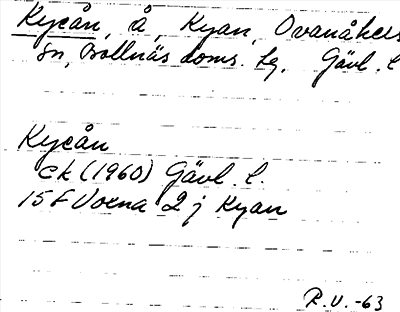 Kycån, å, Kyan, Ovanåkers
sn, Bollnäs doms. lg. Gävl. l
Kycån
ek (1960) Gävl. l.
15 F Voxna 2 j Kyan
R.V. -63